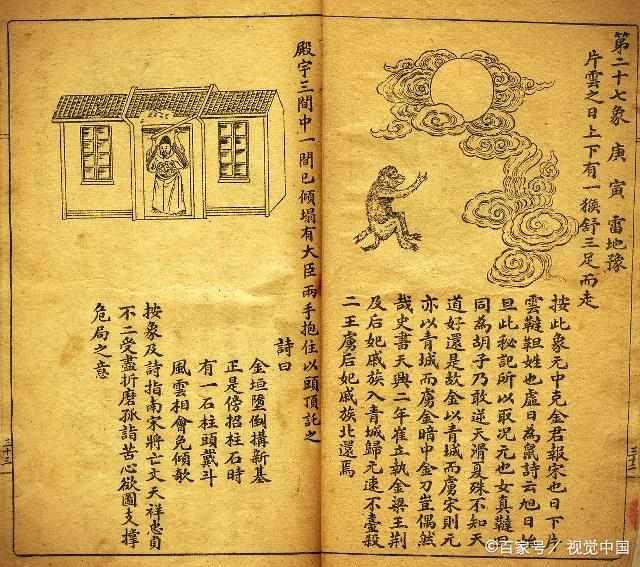 第二十七象 庚寅 雷地豫
片雲之日上下有一猴舒三足而走
按此象元中克金君報宋也日下片
雲韃靼姓也虛日為鼠詩云旭日始
旦此秘記所以取况元也女真韃
同為胡子乃敢逆天滑夏殊不知天
道好還是故金以青城而虜宋則元
亦以青城而虜金暗中金刀豈偶然
哉史書天興二年崔立執金梁王荆
及后妃戚族入青城歸元速不臺殺
二王虜后妃戚族北還焉
殿宇三間中一間已傾塌有大臣兩手抱住以頭頂託之
詩曰
金垣墮倒搆新基
正是傍招柱石時
有一石柱頭戴斗
風雲相會免傾欹
按象及詩指南宋將亡文天祥忠貞
不二受盡折磨孤詣苦心欲圖支撐
危局之意
三十三
©百家号/视觉中国